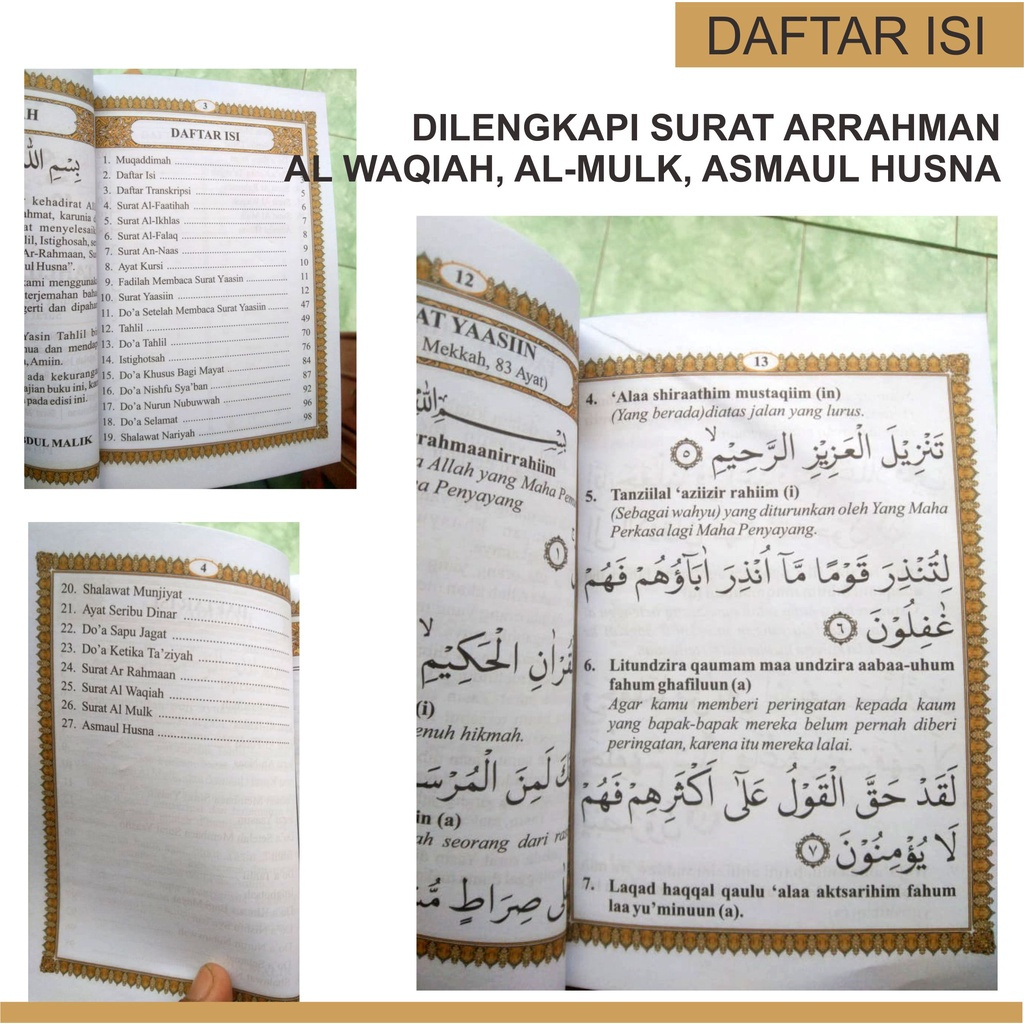 DAFTAR ISI
DILENGKAPI SURAT ARRAHMAN
AL WAQIAH, AL-MULK, ASMAUL HUSNA
AH
بِسْمِ اللّٰهِ
kehadirat
karunia
menyelesaik
Istighosah, se
Ar-Rahmaan, Su
ul Husna".
kami menggunak
terjemahan baha
gerti dan dipaha
Yasin Tahlil
dan mendap
, Amiin.
ada kekuranga
ajian buku ini, kam
pada edisi ini.
BDUL MALIK
3
DAFTAR ISI
1. Muqaddimah
2. Daftar Isi
3. Daftar Transkripsi 5
4. Surat Al-Faatihah 6
5. Surat Al-Ikhlas 7
6. Surat Al-Falaq 8
7. Surat An-Naas 9
8. Ayat Kursi 10
9. Fadilah Membaca Surat Yaasin 11
10. Surat Yaasiin 12
11. Do'a Setelah Membaca Surat Yaasiin 47
12. Tahlil 49
13. Do'a Tahlil 70
14. Istighotsah 76
15. Do'a Khusus Bagi Mayat 84
16. Do'a Nishfu Sya'ban 87
17. Do'a Nurun Nubuwwah 92
18. Do'a Selamat 96
19. Shalawat Nariyah 98
4
20. Shalawat Munjiyat
21. Ayat Seribu Dinar
22. Do'a Sapu Jagat
23. Do'a Ketika Ta'ziyah
24. Surat Ar Rahmaan
25. Surat Al Waqiah
26. Surat Al Mulk
27. Asmaul Husna
12
AT YAASIIN
Mekkah, 83 Ayat)
بِسْــمِ اللّٰهِ
rrahmaanirrahiim
a Allah yang Maha Pe
a Penyayang
١
قُرْاٰنِ الْحَكِيْمِ
(i)
enuh hikmah.
كَ لَمِنَ الْمُرْسَ
in (a)
ah seorang dari ras
عَلٰى صِرَاطٍ مُّ
13
4. 'Alaa shiraathim mustaqiim (in)
(Yang berada)diatas jalan yang lurus.
تَنْزِيْلَ الْعَزِيْزِ الرَّحِيْمِۙ ٥
5. Tanziilal 'aziizir rahiim (i)
(Sebagai wahyu) yang diturunkan oleh Yang Maha
Perkasa lagi Maha Penyayang.
لِتُنْذِرَ قَوْمًا مَّآ اُنْذِرَ اٰبَاۤؤُهُمْ فَهُمْ
غٰفِلُوْنَ ٦
6. Litundzira qaumam maa undzira aabaa-uhum
fahum ghafiluun (a)
Agar kamu memberi peringatan kepada kaum
yang bapak-bapak mereka belum pernah diberi
peringatan, karena itu mereka lalai.
لَقَدْ حَقَّ الْقَوْلُ عَلٰٓى اَكْثَرِهِمْ فَهُمْ
لَا يُؤْمِنُوْنَ ٧
7. Laqad haqqal qaulu 'alaa aktsarihim fahum
laa yu'minuun (a).